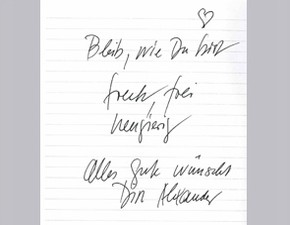 Bleib, wie Du bist
frech, frei
neugierig
Alles Gute wünscht
Dein Alexander